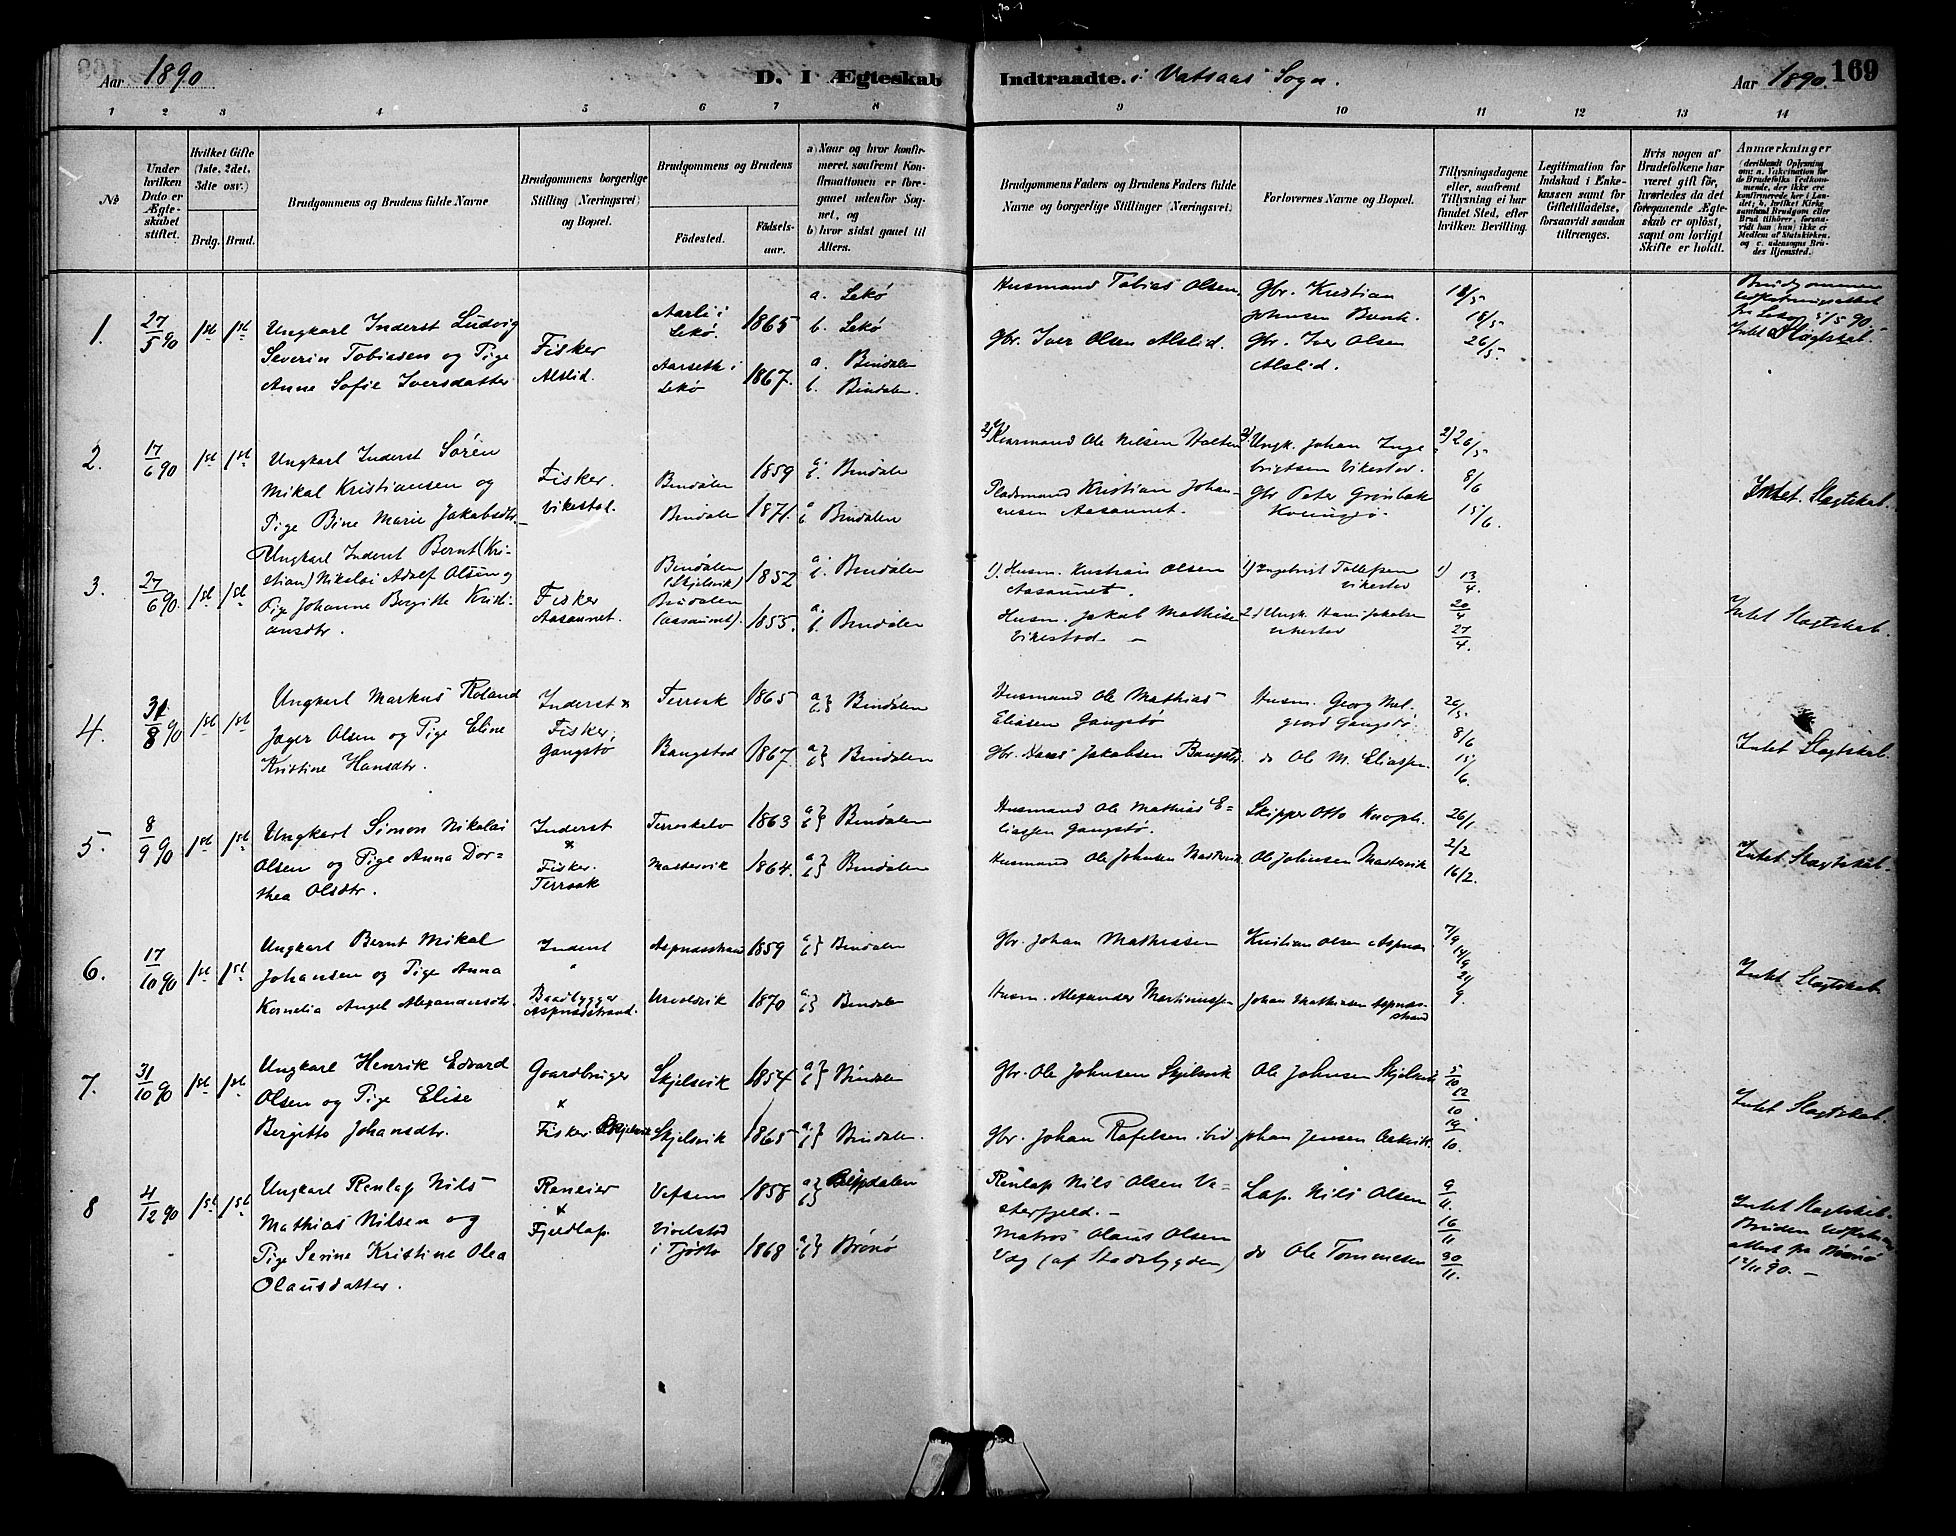 Aar 1890
D. I Ægteskab
Indtraadte. i Vatsaas Sogn.
Aar 1890.
169
1 2 3 4 5 6 7 8 9 10 11 12 13 14
No
Under hvilken Dato er Ægteskabet stiftet.
Hvilket Gifte (1ste, 2det, 3die osv.)
Brdg. Brud.
Brudgommens og Brudens fulde Navne
Brudgommens borgerlige Stilling (Næringsvei) og Bopæl.
Brudgommens og Brudens
Fødested.
Fødselsaar.
a) Naar og hvor konfirmeret, saafremt Konfirmationen er foregaaet udenfor Sognet, og
b) hvor sidst gaaet til Alters.
Brudgommens Faders og Brudens Faders fulde Navne og borgerlige Stillinger (Næringsvei).
Forlovernes Navne og Bopæl.
Tillysningsdagene eller, saafremt Tillysning ei har fundet Sted, efter hvilken Bevilling.
Legitimation for Indskud i Enkekassen samt for Giftetilladelse, forsaavidt saadan tiltrænges.
Hvis nogen af Brudefolkene har været gift før, hvorledes da det foregaaende Ægteskab er opløst, samt om lovligt Skifte er holdt.
Anmærkninger
(deriblandt Oplysning om: a. Vakcination for de Brudefolks Vedkommende, der ikke ere konfirmerede her i Landet; b. hvilket Kirkesamfund Brudgom eller Brud tilhører, forsaavidt han (hun) ikke er Medlem af Statskirken, og c. udensogns Brudes Hjemsted.
1. 27/5 90 1ste 1ste
Ungkarl Inderst Ludvig
Severin Tobiassen og Pige
Anne Sofie Iversdatter
Fisker
Alslid.
Aarli i
Lekø. 1865
Aarseth i
Lekø 1867.
a. Lekø
b. Lekø
a. Bindalen
b. Bindalen.
Husmand Tobias Olsen.
Gbr. Iver Olsen Alslid.
Gbr. Kristian
Johnsen
Gbr. Iver Olsen
Alslid.
18/5
26/5
Intet Slagtskab.
2. 17/6 90 1ste 1ste
Ungkarl Inderst Søren
Mikal Kristiansen og
Pige Bine Marie Jakobsdtr.
Fisker.
Vikestad.
Bindalen 1859
Bindalen 1871.
a. b. Bindalen
a. b. Bindalen
2) Kvarmand Ole Nilsen Holten
Pladsmand Kristian Johannesen Aasaunet.
2) Ungk. Johan Ingebrigtsen Vikestad.
Gbr Peter Grønbæk
2) 26/5
8/6
15/6.
Intet Slagtskab.
3. 27/6 90. 1ste 1ste
Ungkarl Inderst Bernt (Kristian) Nikolai Adolf Olsen og
Pige Johanne Bergitte Kristiansdtr.
Fisker
Aasaunet.
Bindalen
(Skjelsvik) 1852
Bindalen
(Aasaunet). 1855.
a. b. Bindalen
a. b. Bindalen
1). Husm. Kristian Olsen
Aasaunet.
Husm. Jakob Mathisen
Vikestad. –
1) Ingebrigt Tollefsen
Vikestad
2) Ungk. Hans Jakobsen
Vikestad
1) 13/4.
20/4
27/4
Intet Slagtskab.
4. 31/8 90 1ste 1ste
Ungkarl Markus Roland
Jæger Olsen og Pige Eline
Kristine Hansdtr.
Inderst x
Fisker,
Gangstø
Terraak 1865
Bangstad 1867.
a b} Bindalen
a b} Bindalen
Husmand Ole Mathias
Eliasen Gangstø
Gbr. Hans Jakobsen Bangstad.
Husm. Georg
Gangstø.
do Ole M. Eliassen.
26/5
8/6
15/6.
Intet Slagtskab.
5. 8/9 90 1ste 1ste
Ungkarl Simon Nikolai
Olsen og Pige Anna Dorthea Olsdtr.
Inderst
x
Fisker
Terraak
Terraakelv 1863
Mastervik 1864.
a b} Bindalen
a b} Bindalen
Husmand Ole Mathias Eliassen Gangstø.
Husmand Ole Johnsen Mastervik
Skipper Otto Knoph.
Ole Johnsen Mastervik
26/1
2/2
16/2.
Intet Slagtskab.
6. 17/10 90 1ste 1ste
Ungkarl Bernt Mikal
Johansen og Pige Anna
Kornelia Angel Alexandersdtr.
Inderst
"
Baadbygger
Aspnæsstrand.
Aspnæsstrand 1859
Urvoldvik 1870
a b} Bindalen
a b} Bindalen
Gbr. Johan Mathissen
Husm. Alexander Martinussen
Kristian Olsen Aspnæs
Johan Mathiasen Aspnæsstrand
7/9
14/9
21/9.
Intet Slagtskab.
7. 31/10 90 1ste 1ste
Ungkarl Henrik Edvard
Olsen og Pige Elise
Bergitte Johansdtr.
Gaardbruger
x
Fisker Skjelsvik
Skjelsvik 1854
Skjelsvik 1865
a b} Bindalen
a b} Bindalen.
Gbr. Ole Johnsen Skjelsvik
Gbr. Johan Rafelsen ibid
Ole Johnsen Skjelsvik
Johan Jensen
5/10
12/10
19/10.
Intet Slagtskab.
8 4/12 90 1ste 1ste
Ungkarl Renlap Nils
Mathias Nilsen og
Pige Serine Kristine Olea
Olausdatter.
Reneier
x
Fjeldlap.
Vefsen 1858
Vivelstad
i Tjøtto 1868
a b} Bindalen
a b} Brønø
Renlap Nils Olsen Vesterfjeld. –
Matros Olaus Olsen
Vaag (af Stadsbygden)
Lap. Nils Olsen
do Ole Tommesen
9/11.
16/11
30/11.
Intet Slagtskab.
Bruden
attest fra Brønø
12/11 90. –